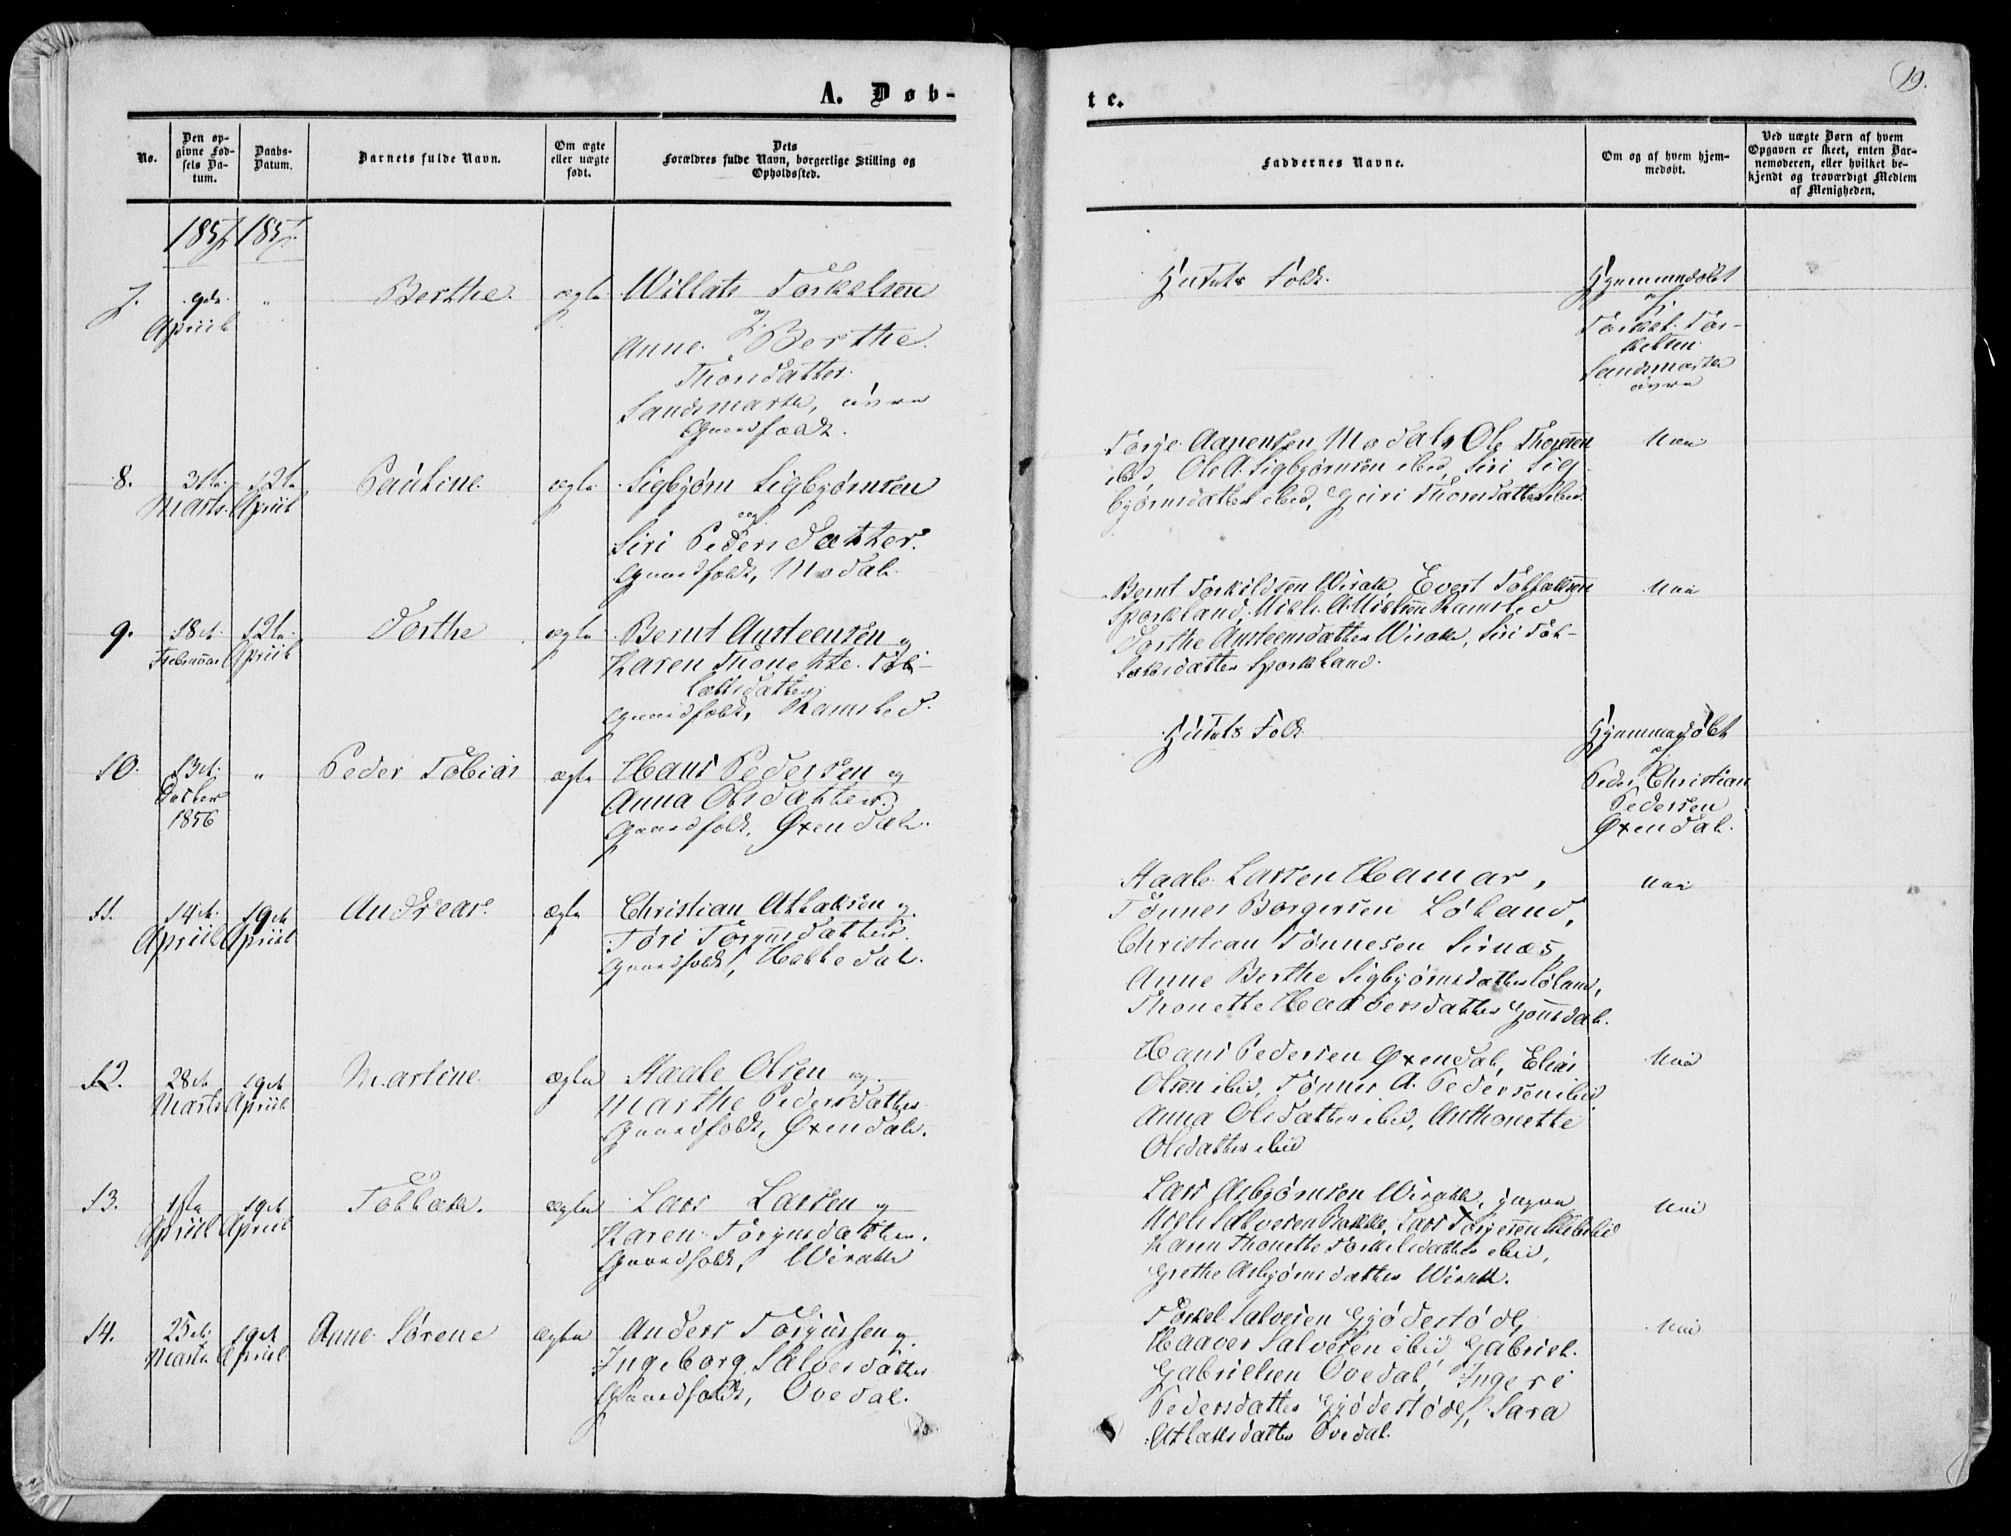 A. Døb-
te.
19.
No.
Den op-
givne Fød-
sels Da-
tum.
Daabs-
Datum.
Barnets fulde Navn.
Om ægte
eller uægte
født.
Dets
Forældres fulde Navn, borgerlige Stilling og
Opholdssted.
Faddernes Navne.
Om og af hvem hjem-
medøbt.
Ved uægte Børn af hvem
Opgaven er skeet, enten Bar-
nemoderen, eller hvilket be-
kjendt og troværdigt Medlem
af Menigheden.
1857 1857
7.
9de
Apriil
"
Berthe.
ægte
Willats Torkelsen
og
Anne Berthe
Thorsdatter.
Sandsmark, øvre
Gaardfolk.
Husets Folk.
Hjemmedøbt
af
Torkel Tor-
kelsen
Sandsmark
øvre
8.
31te
Marts
12te
Apriil
Pauline
ægte
Sigbjørn Sigbjørnsen
og
Siri Pedersdatter.
Gaardfolk, Modal.
Torje Aanensen Modal, Ole Thorsen
ibid, Ole A. Sigbjørnsen ibid, Siri Sig-
bjørnsdatter ibid, Thorsdatter ibid.
Nei
9.
18de
Februar
12te
Apriil
Dorthe
ægte
Bernt Austeensen og
Karen Thonette Tol-
laksdatter
Gaardfolk, Ramsled.
Bernt Torkildsen Virak, Evert Tollaksen
Sporkland, Niels A. Nielsen Ramsled
Dorthe Austeensdatter Virak, Siri Tol-
laksdatter Sporkland.
Nei
10.
13de
October
1856
"
Peder Tobias
ægte
Hans Pedersen og
Anna Olsdatter.
Gaardfolk, Øxendal.
Husets Folk
Hjemmedøbt
af
Peder Christian
Pedersen
Øxendal.
11.
14de
Apriil
19de
Apriil
Andreas.
ægte
Christian Atlaksen og
Tori Torjusdatter.
Gaardfolk, Helledal.
Staale Larsen Hamar,
Tønnes Borgersen Løland,
Christian Tønnesen Sirnæs,
Anne Berthe Sigbjørnsdatter Løland,
Thonette Haaversdatter
Nei
12.
28de
Marts
19de
Apriil
Martine
ægte
Staale Olsen og
Marthe Pedersdatter
Gaardfolk, Øxendal.
Hans Pedersen Øxendal, Elias
Olsen ibid, Tønnes A. Pedersen ibid,
Anna Olsdatter ibid, Anthonette
Olsdatter ibid
Nei
13.
1ste
Apriil
19de
Apriil
Tollak.
ægte
Lars Larsen og
Karen Torjusdatter.
Gaardfolk, Virak
Lars Asbjørnsen Virak,
Niels Salvesen Bakke, Lars Torjersen
Karen Thonette Torkelsdatter ibid,
Grethe Asbjørnsdatter Virak.
Nei
14.
25de
Marts
19de
Apriil
Anne Sørene
ægte
Anders Torjussen og
Ingeborg Salvesdatter
Gaardfolk, Ovedal.
Torkel Salvesen Gjødestødl,
Haaver Salvesen ibid, Gabriel
Gabrielsen Ovedal, Ingeri
Pedersdatter Gjødestødl, Sara
Atlaksdatter Ovedal.
Nei